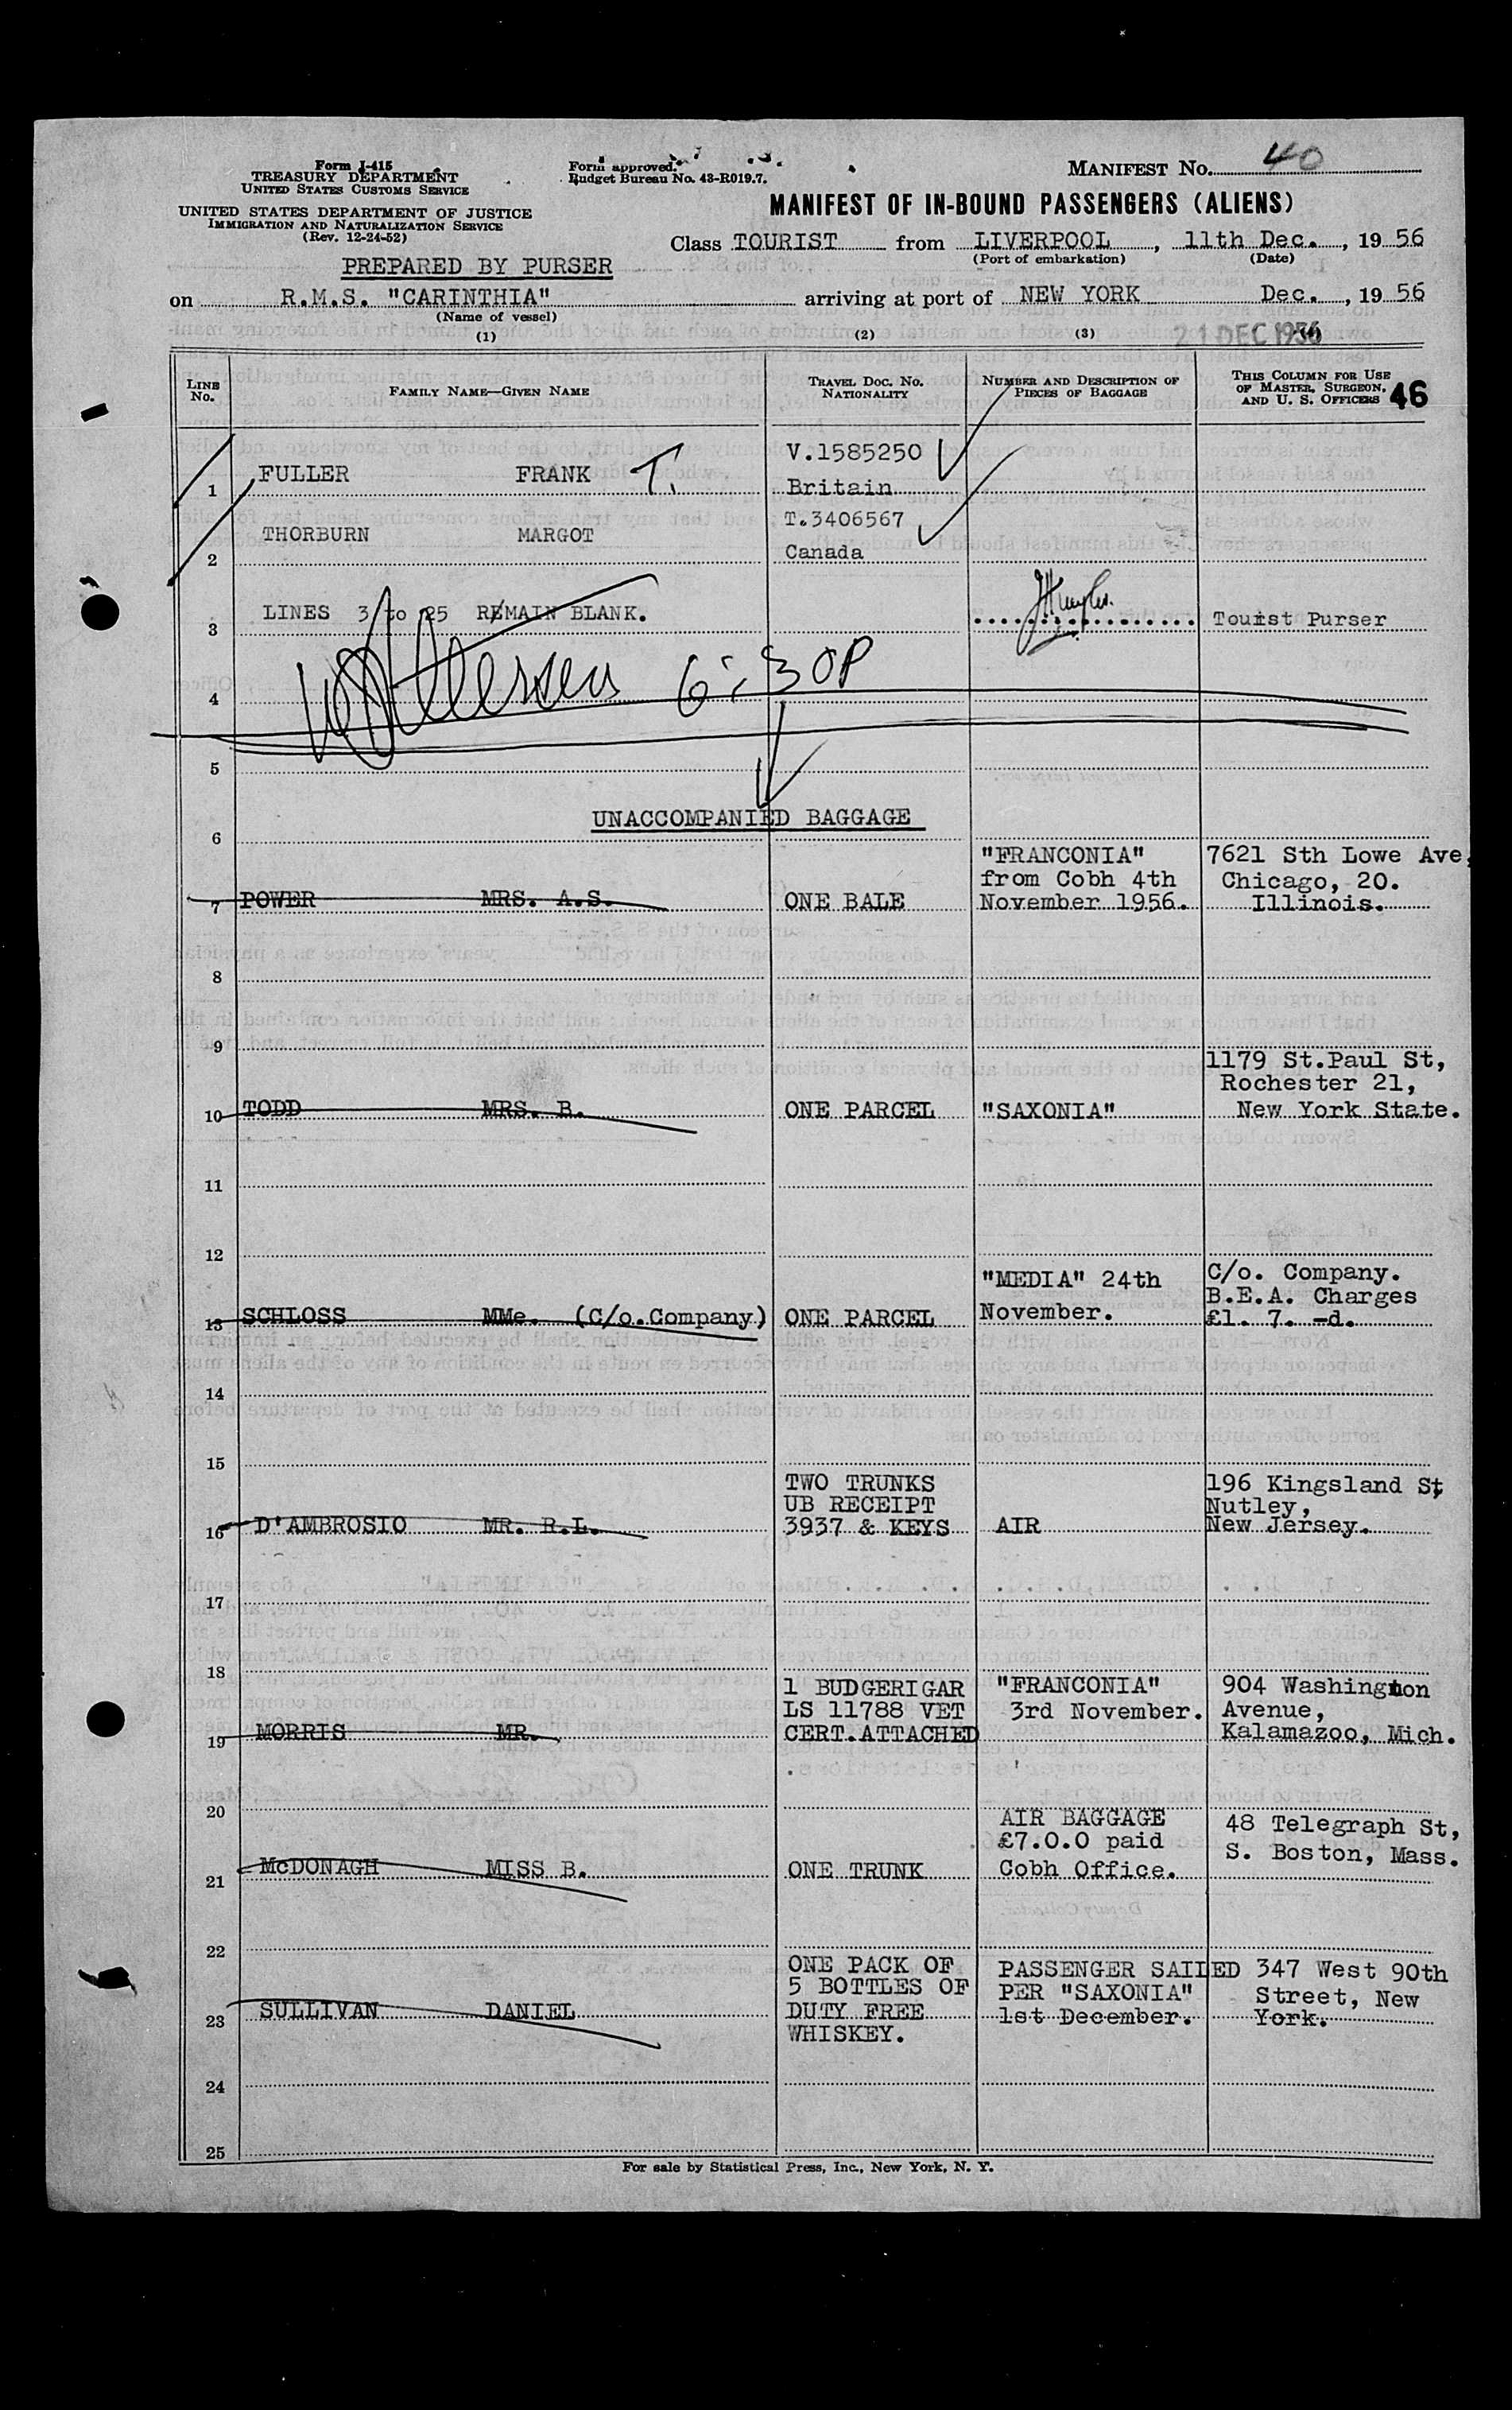 Form I-415
TREASURY DEPARTMENT
UNITED STATES CUSTOMS SERVICE
UNITED STATES DEPARTMENT OF JUSTICE
IMMIGRATION AND NATURALIZATION SERVICE
(Rev. 12-24-52)
Form approved.
Budget Bureau No. 43-R019.7.
MANIFEST No. 40
MANIFEST OF IN-BOUND PASSENGERS (ALIENS)
Class TOURIST from LIVERPOOL, 11th Dec., 19 56
(Port of embarkation) (Date)
PREPARED BY PURSER
on R.M.S. "CARINTHIA" arriving at port of NEW YORK Dec., 19 56
(Name of vessel)
21 DEC 1956
(1) (2) (3)
LINE No. FAMILY NAME—GIVEN NAME TRAVEL DOC. NO. NATIONALITY NUMBER AND DESCRIPTION OF PIECES OF BAGGAGE THIS COLUMN FOR USE OF MASTER, SURGEON, AND U. S. OFFICERS 46
1 FULLER FRANK T. V.1585250
Britain
2 THORBURN MARGOT T.3406567
Canada
3 LINES 3 to 25 REMAIN BLANK. Tourist Purser
4 6:30P
5
UNACCOMPANIED BAGGAGE
6
7 POWER MRS. A.S. ONE BALE "FRANCONIA" from Cobh 4th November 1956. 7621 Sth Lowe Ave, Chicago, 20. Illinois.
8
9
10 TODD MRS. B. ONE PARCEL "SAXONIA" 1179 St.Paul St, Rochester 21, New York State.
11
12
13 SCHLOSS MMe. (C/o.Company) ONE PARCEL "MEDIA" 24th November. C/o. Company. B.E.A. Charges £1. 7. -d.
14
15
16 D'AMBROSIO MR. R.L. TWO TRUNKS UB RECEIPT 3937 & KEYS AIR 196 Kingsland St, Nutley, New Jersey.
17
18
19 MORRIS MR. 1 BUDGERIGAR LS 11788 VET CERT.ATTACHED. "FRANCONIA" 3rd November. 904 Washington Avenue, Kalamazoo, Mich.
20
21 McDONAGH MISS B. ONE TRUNK AIR BAGGAGE £7.0.0 paid Cobh Office. 48 Telegraph St, S. Boston, Mass.
22
23 SULLIVAN DANIEL ONE PACK OF 5 BOTTLES OF DUTY FREE WHISKEY. PASSENGER SAILED PER "SAXONIA" 1st December. 347 West 90th Street, New York.
24
25
For sale by Statistical Press, Inc., New York, N. Y.